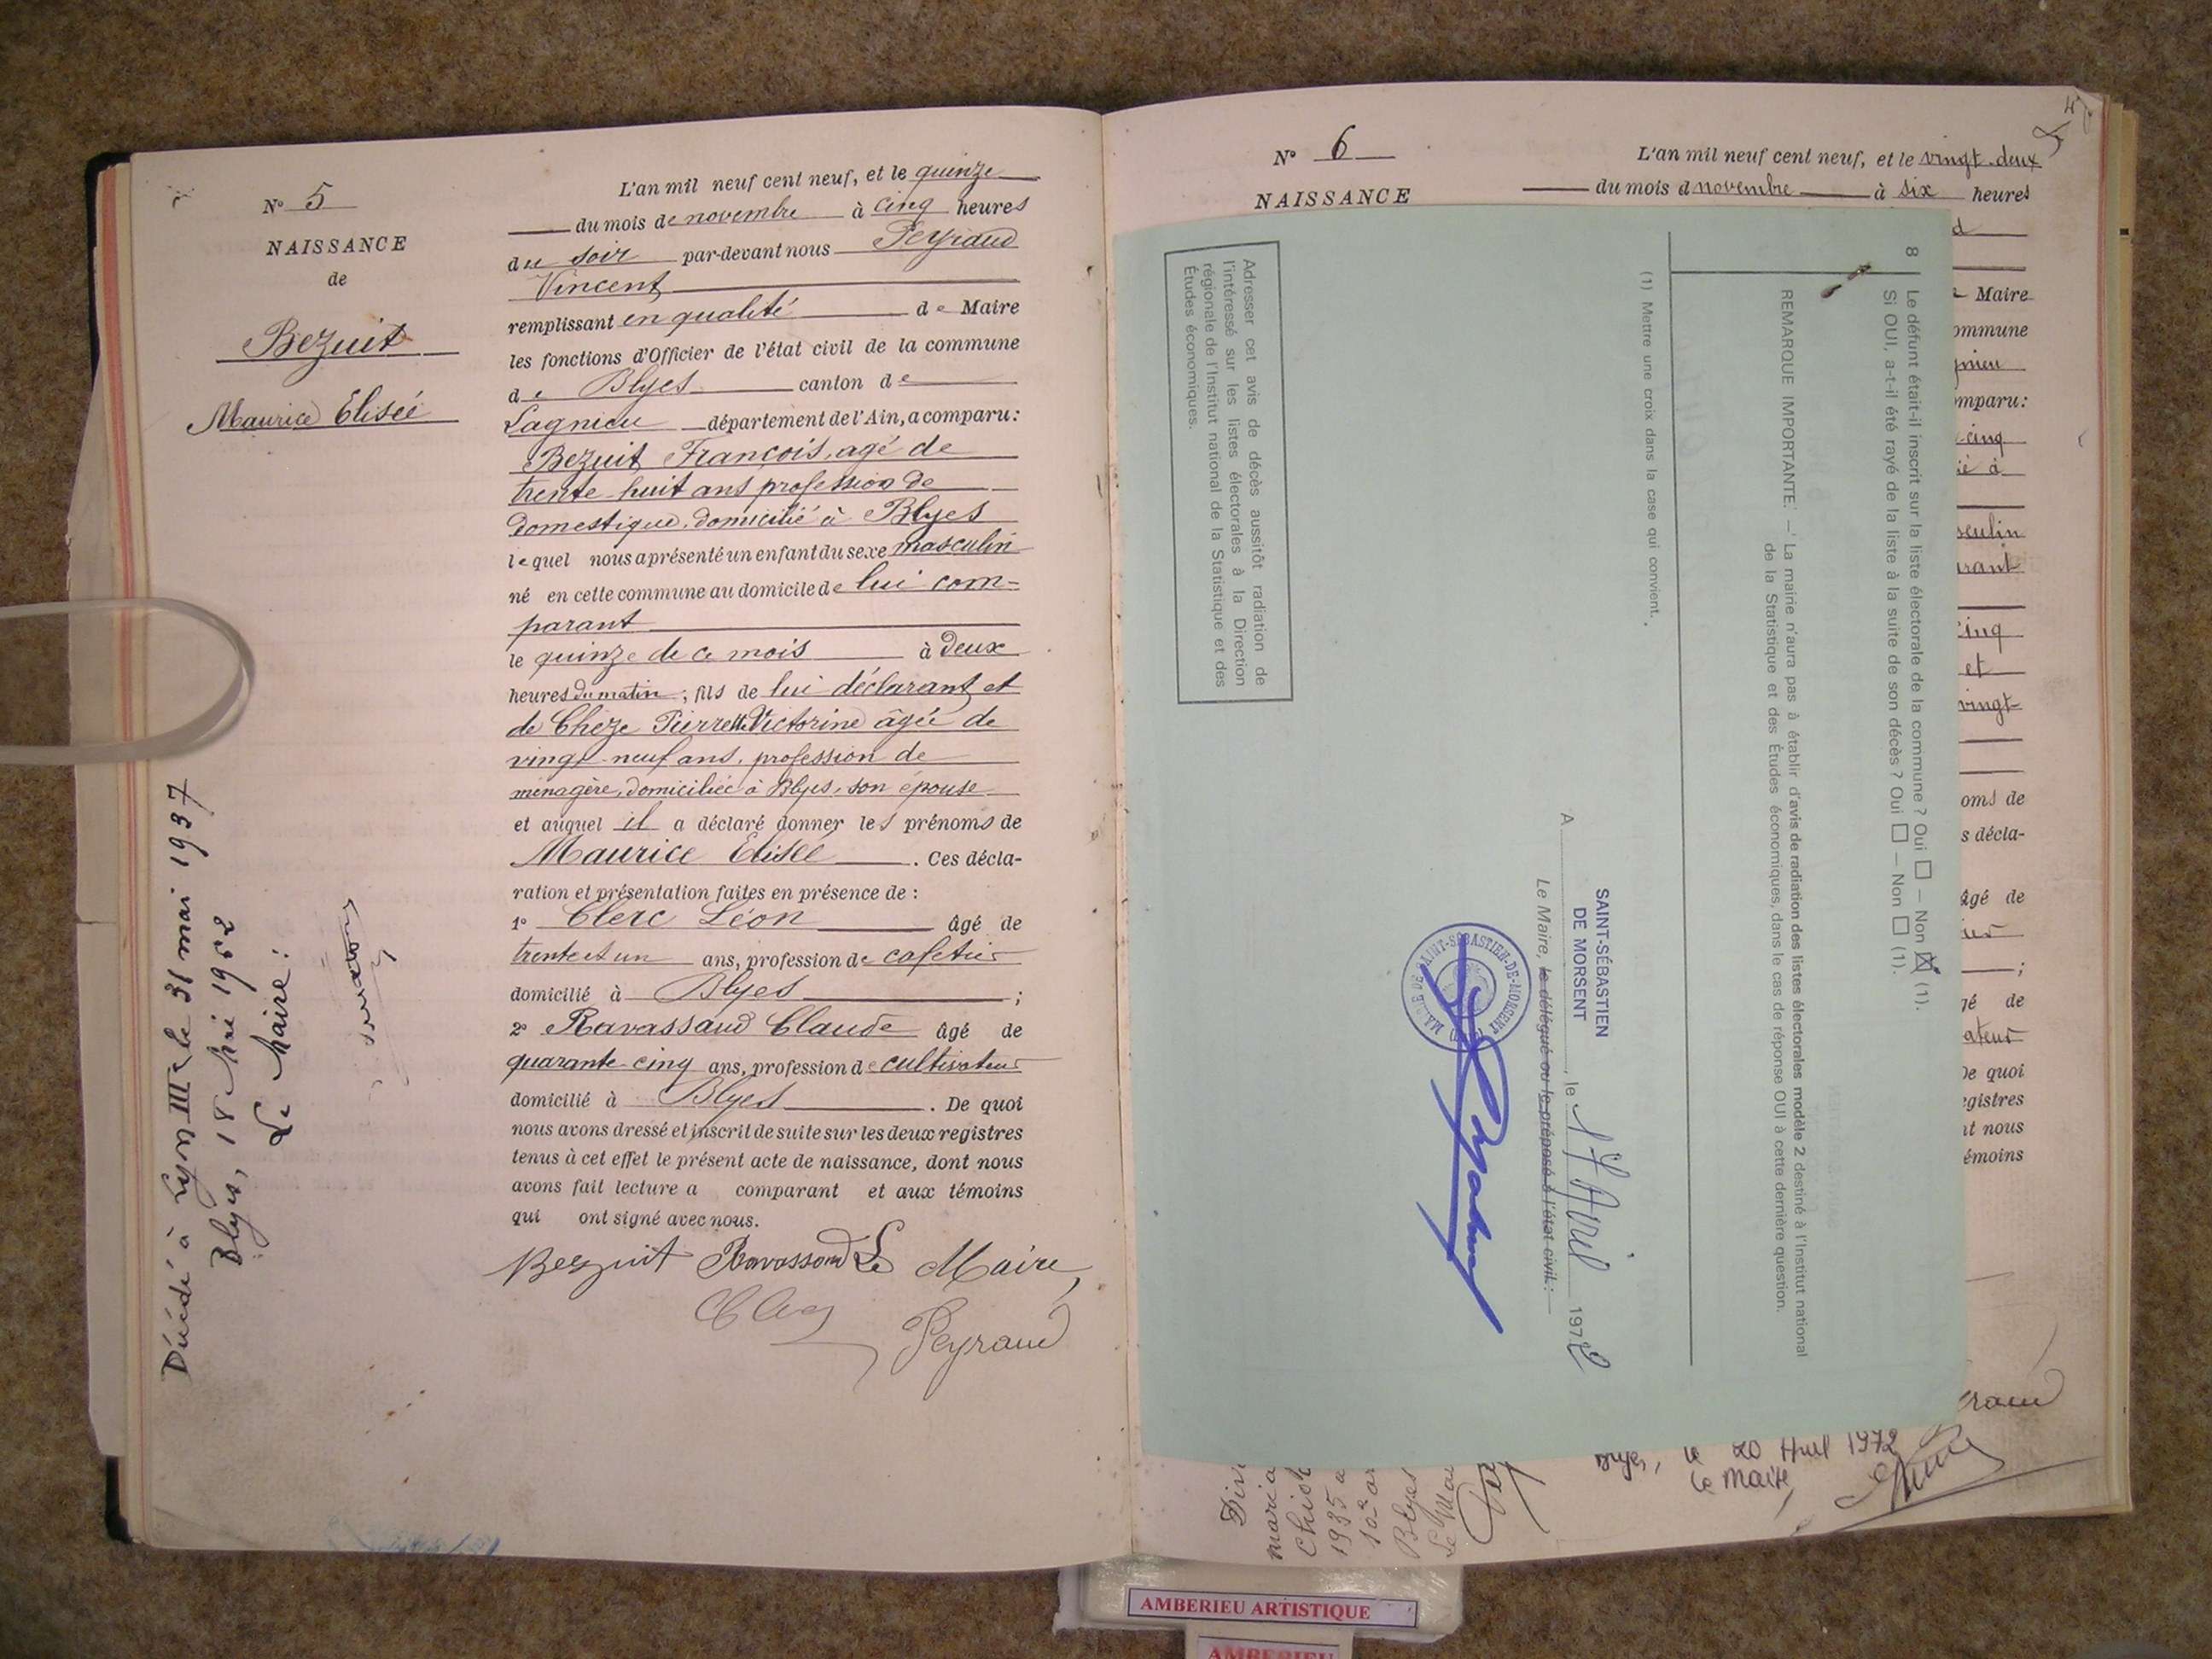 N° 5
NAISSANCE
de
Bezuit
Maurice Elisée
L'an mil neuf cent neuf, et le quinze
du mois de novembre à cinq heures
du soir par-devant nous Peyraud
Vincent
remplissant en qualité de Maire
les fonctions d'Officier de l'état civil de la commune
de Blyes canton de
Lagnieu département de l'Ain, a comparu:
Bezuit François, agé de
trente-huit ans profession de
domestique, domicilié à Blyes
lequel nous a présenté un enfant du sexe masculin
né en cette commune au domicile de lui com=
parant
le quinze de ce mois à deux
heures du matin; fils de lui déclarant et
de Cheze Pierrette Victorine âgée de
vingt-neuf ans, profession de
ménagère, domiciliée à Blyes, son épouse
et auquel il a déclaré donner les prénoms de
Maurice Elisée. Ces décla-
ration et présentation faites en présence de:
1° Clerc Léon âgé de
trente et un ans, profession de cafetier
domicilié à Blyes;
2° Ravassaud Claude âgé de
quarante-cinq ans, profession de cultivateur
domicilié à Blyes. De quoi
nous avons dressé et inscrit de suite sur les deux registres
tenus à cet effet le présent acte de naissance, dont nous
avons fait lecture a comparant et aux témoins
qui ont signé avec nous.
Bezuit Ravassaud Le Maire,
Clerc Peyraud
Décédé à Lyon III le 31 mai 1937
Blyes, 18 Mai 1952
Le Maire:
N° 6
NAISSANCE
L'an mil neuf cent neuf, et le vingt-deux
du mois d novembre à six heures
d
Maire
ommune
gnieu
omparu:
-cinq
ié à
sculin
arant
cinq
et
vingt-
oms de
s décla-
âgé de
;
gé de
ateur
De quoi
egistres
nt nous
émoins
raud
8 Le défunt était-il inscrit sur la liste électorale de la commune? Oui ☐ – Non ☒ (1).
Si OUI, a-t-il été rayé de la liste à la suite de son décès? Oui ☐ – Non ☐ (1).
REMARQUE IMPORTANTE. – La mairie n'aura pas à établir d'avis de radiation des listes électorales modèle 2 destiné à l'Institut national
de la Statistique et des Études économiques, dans le cas de réponse OUI à cette dernière question.
(1) Mettre une croix dans la case qui convient.
SAINT-SÉBASTIEN
DE MORSENT
A , le 17 Avril 1972
Le Maire, le délégué ou le préposé à l'état civil:
MAIRIE DE SAINT-SÉBASTIEN-DE-MORSENT
Adresser cet avis de décès aussitôt radiation de
l'intéressé sur les listes électorales à la Direction
régionale de l'Institut national de la Statistique et des
Études économiques.
Blyes, le 20 Avril 1972
Le Maire,
Div
maria
Christ
1935 a
10e ar
Blyes
Le Mai
AMBERIEU ARTISTIQUE
AMBERIEU